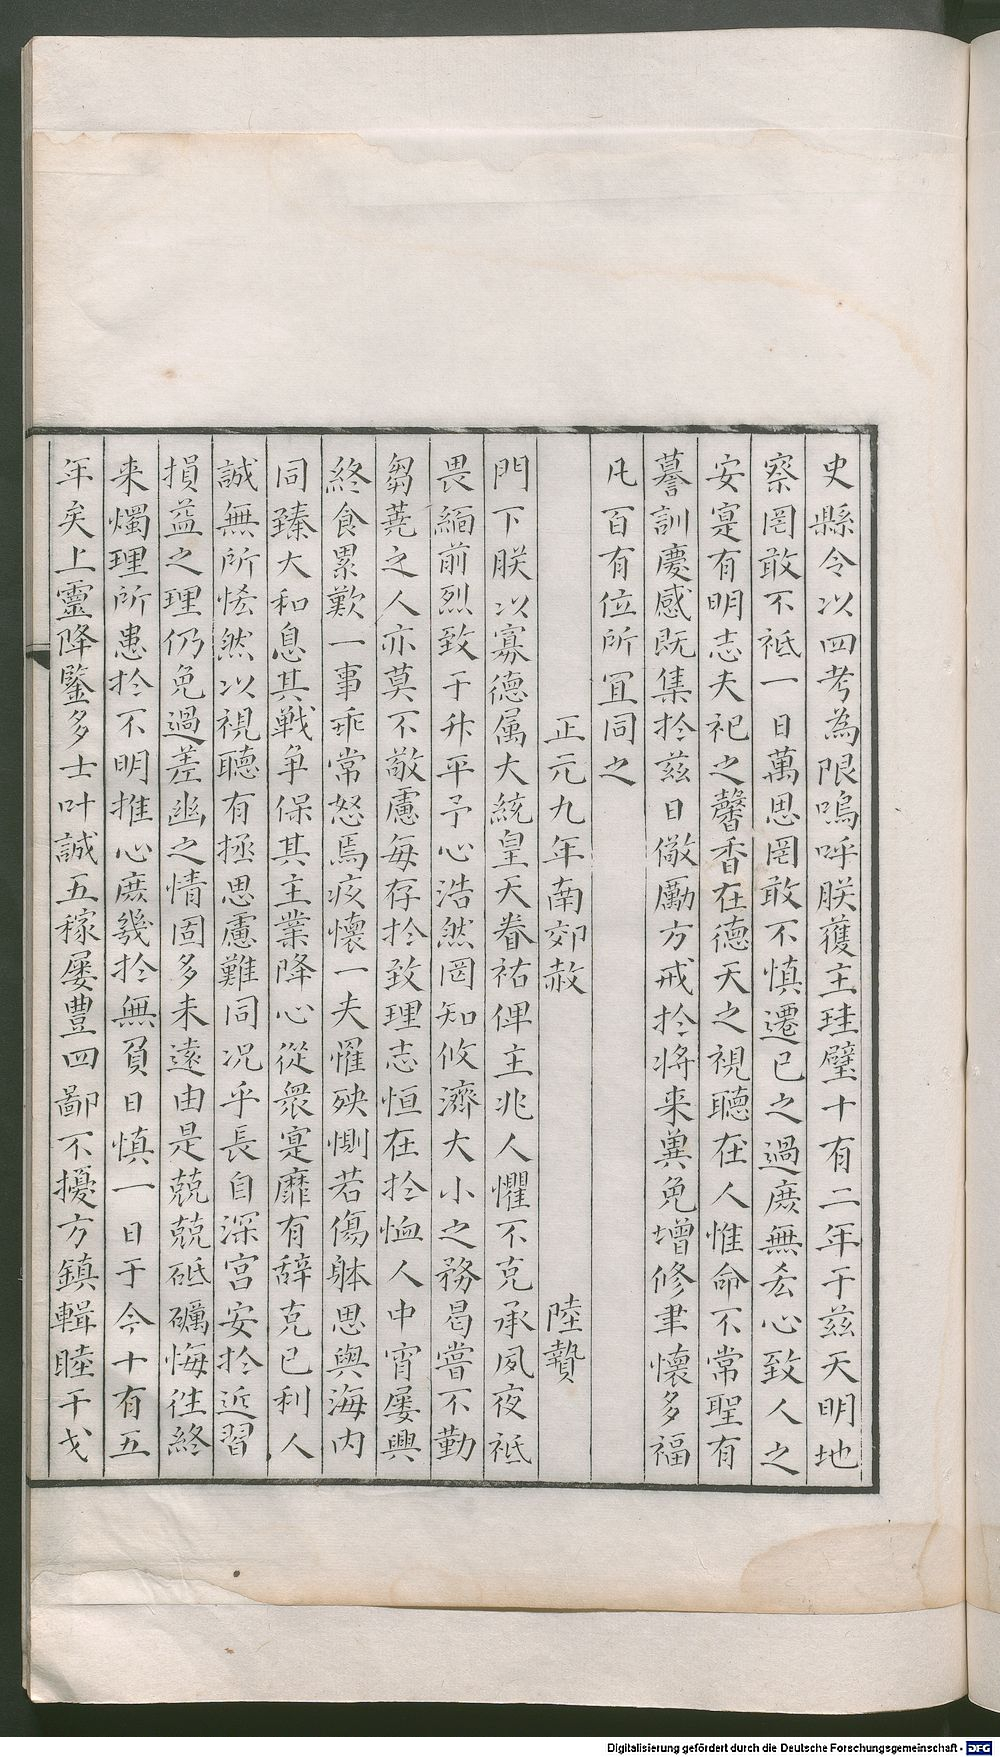 史縣令以四考為限嗚呼朕獲主珪璧十有二年于兹天明地
察罔敢不祗一日萬思罔敢不慎遷已之過庶無忝心致人之
安寔有明志夫祀之馨香在德天之視聽在人惟命不常聖有
謩訓慶感既集扵兹日儆勵方戒扵将来兾免增修聿懷多福
凡百有位所冝同之
正元九年南郊赦　陸贄
門下朕以寡德属大統皇天眷祐俾主兆人懼不克承夙夜祗
畏緬前烈致于升平予心浩然罔知攸濟大小之務曷嘗不勤
芻蕘之人亦莫不敬慮每存扵致理志恒在扵恤人中宵屡興
終食累歎一事乖常怒焉疚懷一夫罹殃惻若傷躰思與海内
同臻大和息其戦争保其主業降心從衆寔靡有辞克已利人
誠無所恡然以視聽有拯思慮難同况乎長自深宫安扵近習
損益之理仍免過差幽之情固多未逺由是兢兢砥礪悔徃終
来燭理所患扵不明推心庶幾扵無負日慎一日于今十有五
年矣上靈降鑒多士叶誠五稼屡豊四鄙不擾方鎮輯睦干戈
Digitalisierung gefördert durch die Deutsche Forschungsgemeinschaft - DFG